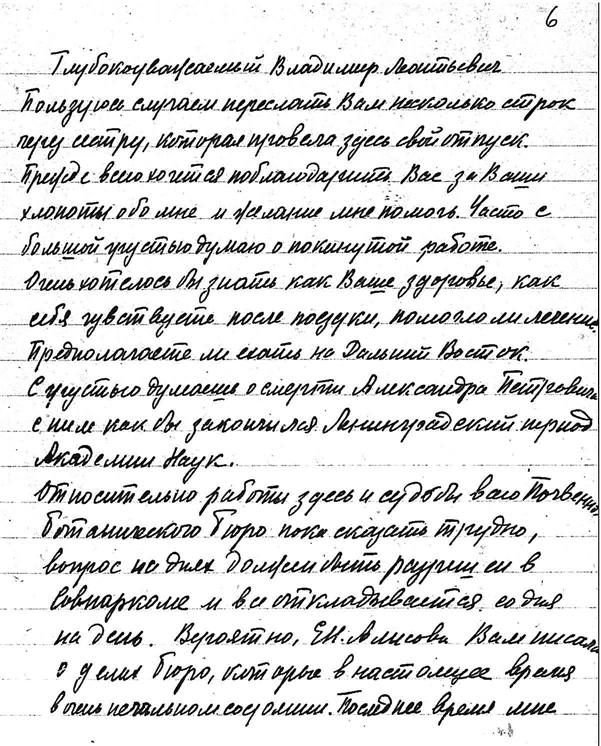 6
Глубокоуважаемый Владимир Леонтьевич
Пользуюсь случаем переслать Вам несколько строк
через сестру, которая провела здесь свой отпуск.
Прежде всего хочется поблагодарить Вас за Ваши
хлопоты обо мне и желание мне помочь. Часто с
большой грустью думаю о покинутой работе.
Очень хотелось бы знать как Ваше здоровье, как
себя чувствуете после поездки, помогло ли лечение.
Предполагаете ли ехать на Дальний Восток.
С грустью думаешь о смерти Александра Петровича
с ним как бы закончился Ленинградский период
Академии Наук.
Относительно работы здесь и судьбы всего Почвенно
ботанического бюро пока сказать трудно,
вопрос на днях должен быть разрешен в
Совнаркоме и все откладывается со дня
на день. Вероятно, Е.Н. Алисова Вам писала
о делах бюро, которые в настоящее время
в очень печальном состоянии. Последнее время мне